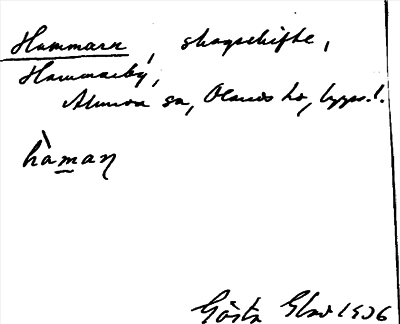 Hammarn, skogsskifte,
Hammarby,
Almunge sn, Olands hd, Upps. l.
hàman
Gösta Elad 1926